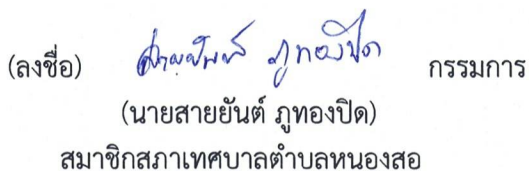 (ลงชื่อ) สายยันต์ ภูทองปิด กรรมการ
(นายสายยันต์ ภูทองปิด)
สมาชิกสภาเทศบาลตำบลหนองสอ